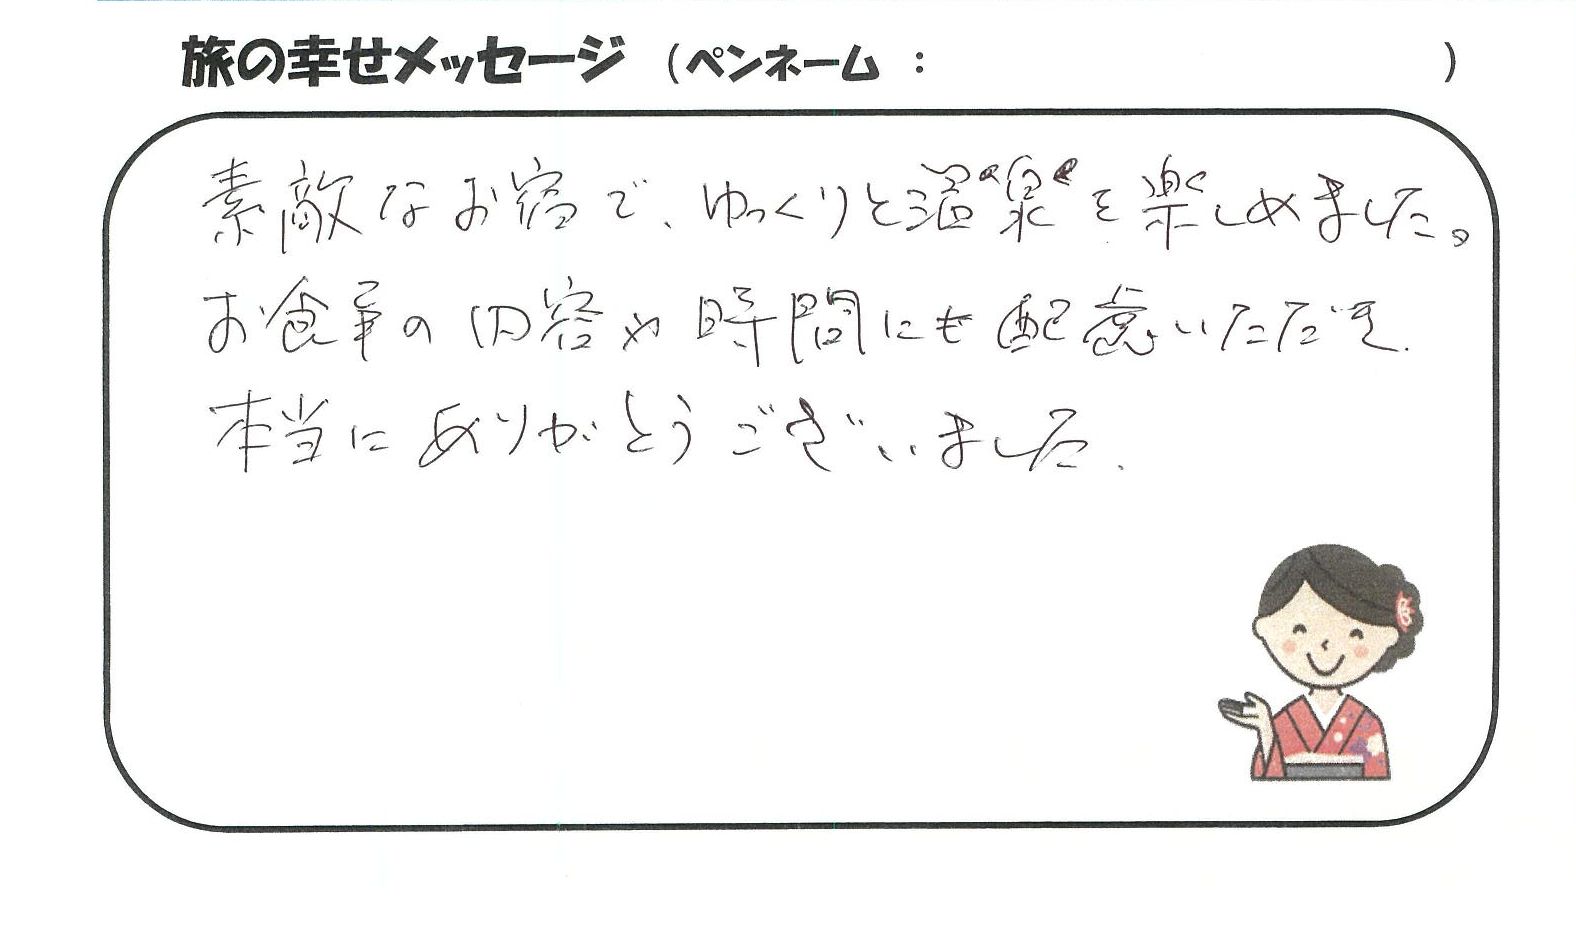 旅の幸せメッセージ （ペンネーム ： ）
素敵なお宿で、ゆっくりと温泉を楽しめました。
お食事の内容や時間にも配慮いただき、
本当にありがとうございました。